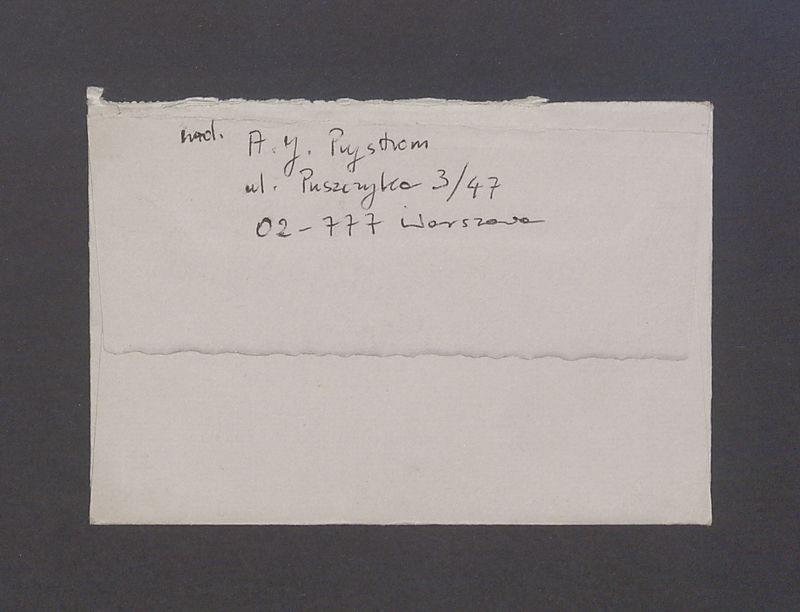 nad. A. J. Prystrom
ul. Puszczyka 3/47
02-777 Warszawa